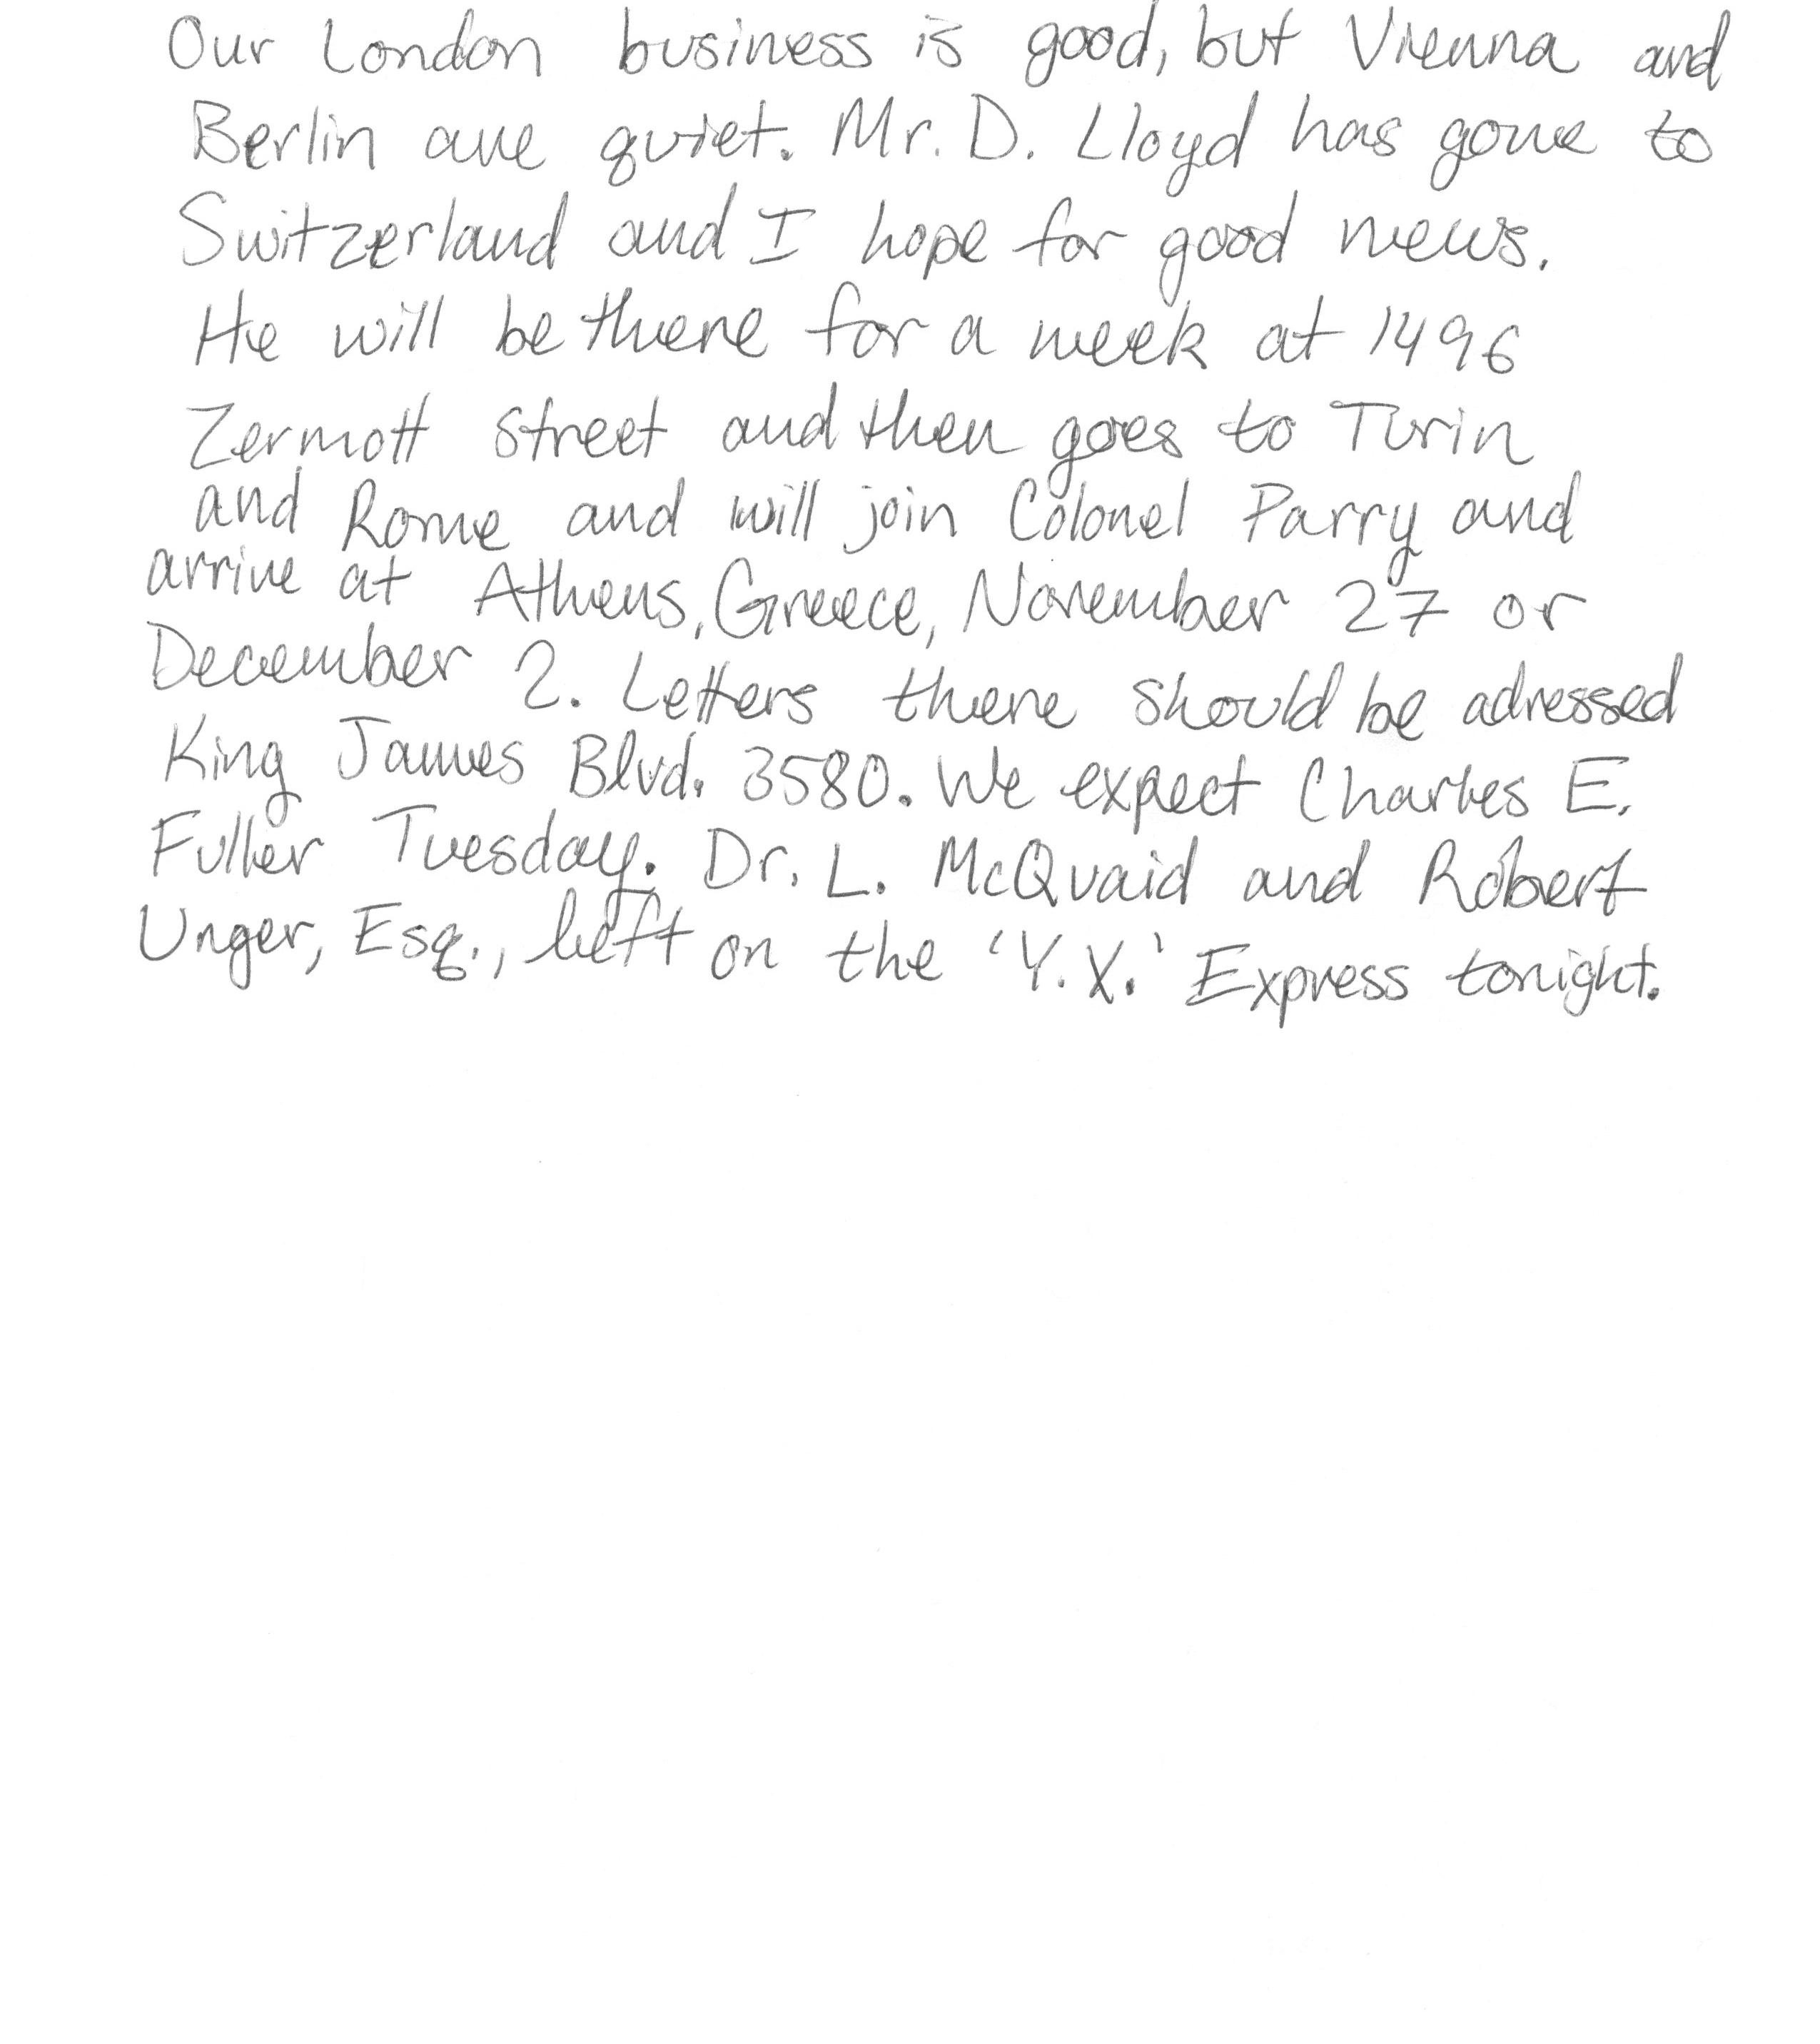 Our London business is good, but Vienna and
Berlin are quiet. Mr. D. Lloyd has gone to
Switzerland and I hope for good news.
He will be there for a week at 1496
Zermott street and then goes to Turin
and Rome and will join Colonel Parry and
arrive at Athens, Greece, November 27 or
December 2. Letters there should be adressed
King James Blvd. 3580. We expect Charles E.
Fuller Tuesday. Dr. L. McQuaid and Robert
Unger, Esq., left on the 'Y.X.' Express tonight.